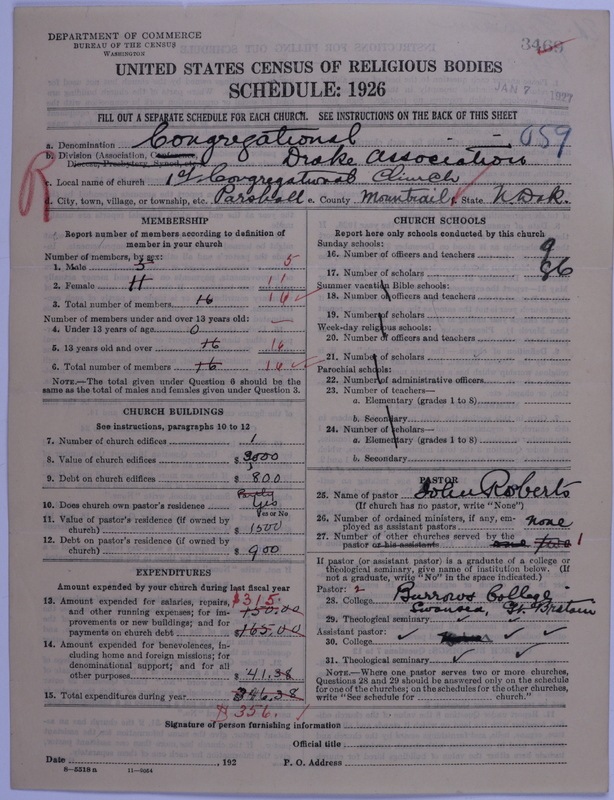 DEPARTMENT OF COMMERCE
BUREAU OF THE CENSUS
WASHINGTON
3465
UNITED STATES CENSUS OF RELIGIOUS BODIES
SCHEDULE: 1926
JAN 7 1927
FILL OUT A SEPARATE SCHEDULE FOR EACH CHURCH. SEE INSTRUCTIONS ON THE BACK OF THIS SHEET
a. Denomination Congregational 059
b. Division (Association, Conference, Diocese, Presbytery, Synod, etc.) Drake Association
R
c. Local name of church 1st Congregational Church
d. City, town, village, or township, etc. Parshall e. County Mountrail f. State N. Dak.
MEMBERSHIP
Report number of members according to definition of
member in your church
Number of members, by sex:
1. Male 5 5
2. Female 11 11
3. Total number of members 16 16
Number of members under and over 13 years old:
4. Under 13 years of age 0 —
5. 13 years old and over 16 16
6. Total number of members 16 16
NOTE.—The total given under Question 6 should be the
same as the total of males and females given under Question 3.
CHURCH BUILDINGS
See instructions, paragraphs 10 to 12
7. Number of church edifices 1
8. Value of church edifices $ 3000
9. Debt on church edifices $ 800
10. Does church own pastor's residence Yes
Yes or No
11. Value of pastor's residence (if owned by
church) $ 1500
12. Debt on pastor's residence (if owned by
church) $ 900
EXPENDITURES
Amount expended by your church during last fiscal year
13. Amount expended for salaries, repairs, $315.
and other running expenses; for im- 150.00
provements or new buildings; and for
payments on church debt $165.00
14. Amount expended for benevolences, in-
cluding home and foreign missions; for
denominational support; and for all
other purposes $ 41.38
15. Total expenditures during year $346.38
$356.
CHURCH SCHOOLS
Report here only schools conducted by this church
Sunday schools:
16. Number of officers and teachers 9
17. Number of scholars 96
Summer vacation Bible schools:
18. Number of officers and teachers
19. Number of scholars
Week-day religious schools:
20. Number of officers and teachers
21. Number of scholars
Parochial schools:
22. Number of administrative officers
23. Number of teachers—
a. Elementary (grades 1 to 8)
b. Secondary
24. Number of scholars—
a. Elementary (grades 1 to 8)
b. Secondary
PASTOR
25. Name of pastor John Roberts
(If church has no pastor, write "None")
26. Number of ordained ministers, if any, em-
ployed as assistant pastors none
27. Number of other churches served by the
pastor or his assistants one two 1
If pastor (or assistant pastor) is a graduate of a college or
theological seminary, give name of institution below. (If
not a graduate, write "No" in the space indicated.)
Pastor: 2
28. College Burrows College
Swansea, Gt. Britain
29. Theological seminary
Assistant pastor:
30. College
31. Theological seminary
NOTE.—Where one pastor serves two or more churches,
Questions 28 and 29 should be answered only on the schedule
for one of the churches; on the schedules for the other churches,
write "See schedule for church."
Signature of person furnishing information
Official title
Date , 192 P. O. Address
8—5518 a 11—5064